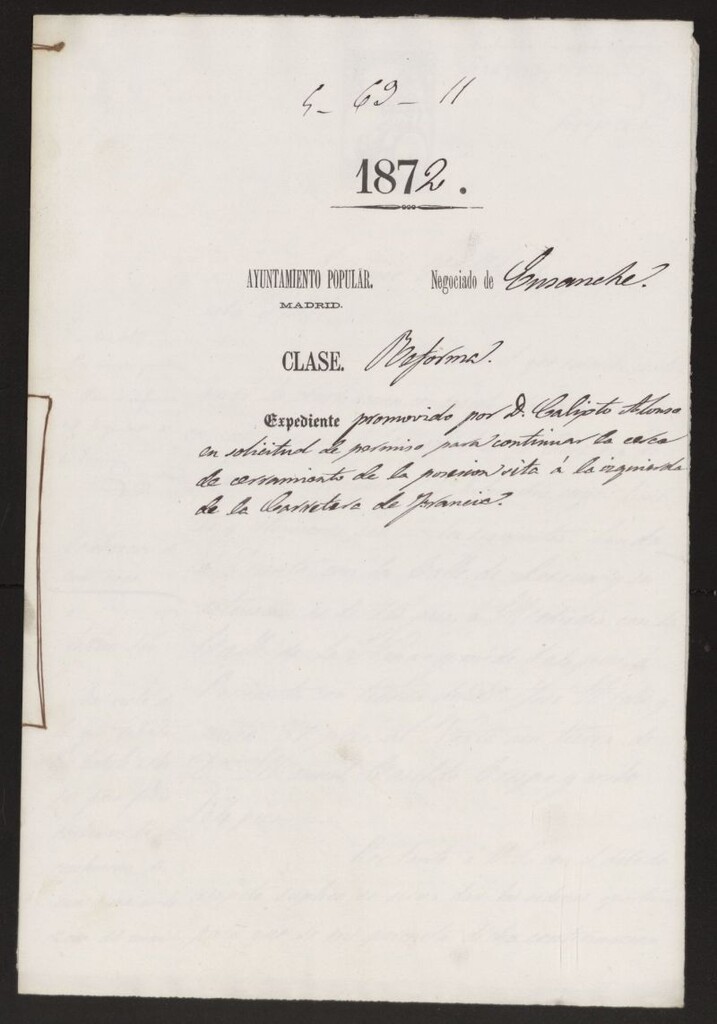 5 - 69 - 11
1872.
AYUNTAMIENTO POPULAR. Negociado de Ensanche.
MADRID.
CLASE. Reforma.
Expediente promovido por D. Calipto Alonso
en solicitud de permiso para continuar la cerca
de cerramiento de la posesion sita á la izquierda
de la Carretera de Francia.